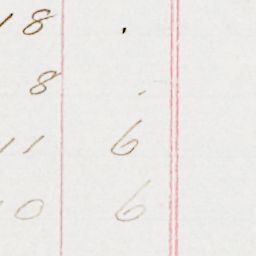 18 .
8 .
11 6
10 6